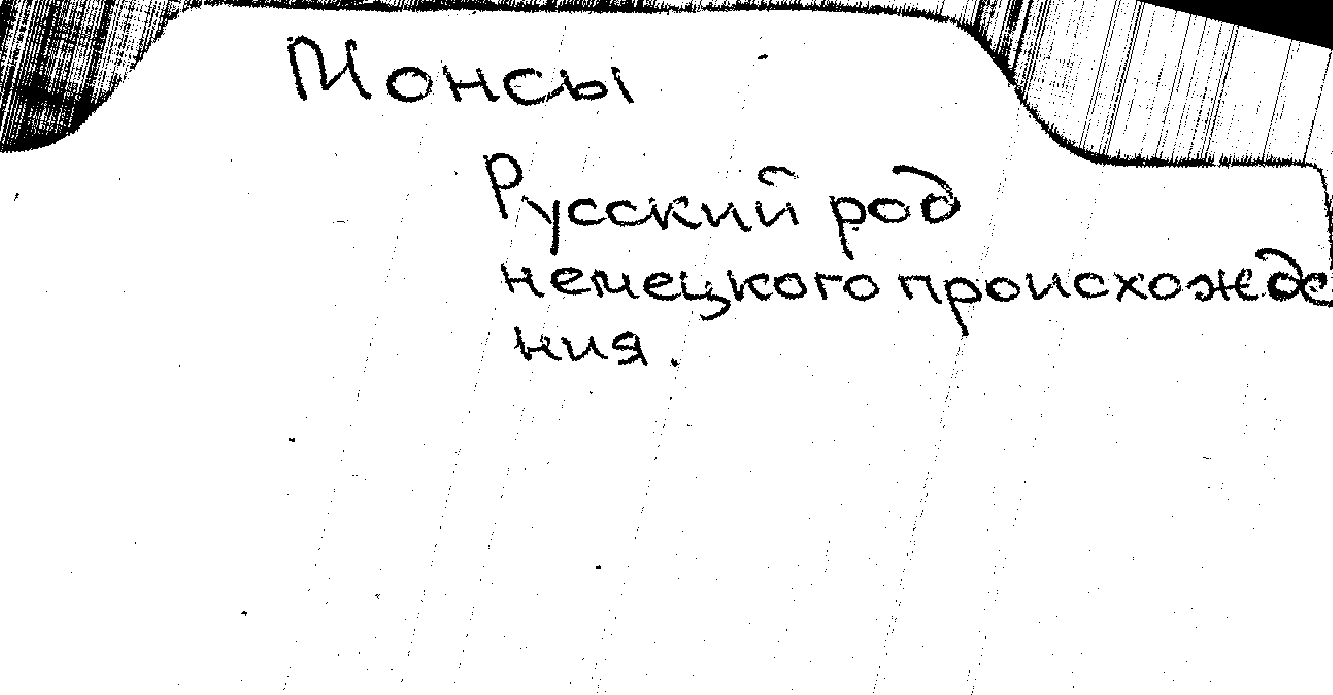 Монсы
Русский род
немецкого происхожде
ния.